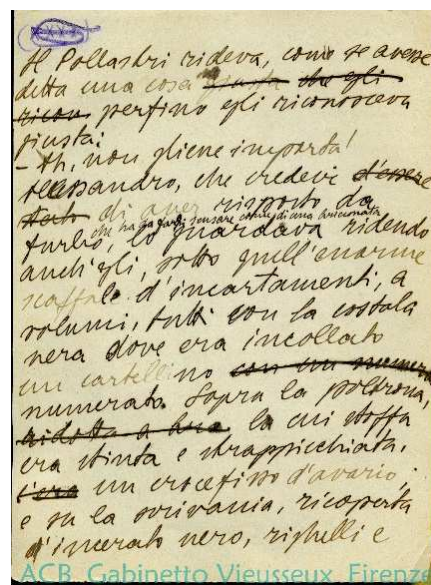 Il Pollastri rideva, come se avesse
detta una cosa giusta che egli
ricon perfino egli riconosceva
giusta:
- Ah, non gliene importa!
Alessandro, che credeva d'essere
stato di aver risposto da
che ha da farsi scusare come di una
furbo, lo guardava ridendo
anch'egli, sotto quell'enorme
scaffale d'incartamenti, a
volumi, tutti con la costola
nera dove era incollato
un cartellino con un numero
numerato. Sopra la poltrona,
ridotta a la cui stoffa
era stinta e strappicchiata,
c'era un crocefisso d'avorio;
e su la scrivania, ricoperta
d'incerato nero, righelli e
ACB Gabinetto Vieusseux Firenze